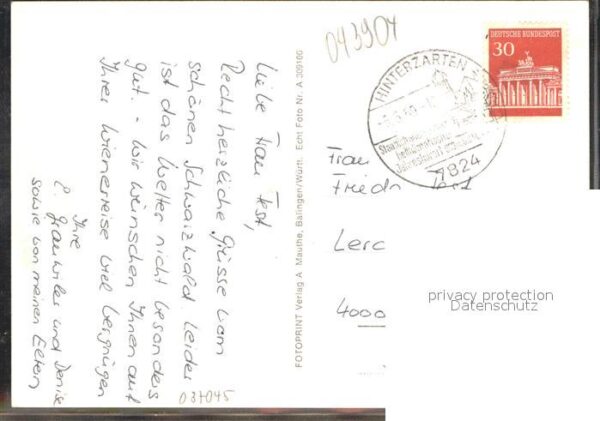 Liebe Frau Test,
Recht herzliche Grüsse vom
schönen Schwarzwald. Leider
ist das Wetter nicht besonders
gut. - Wir wünschen Ihnen auf
Ihrer Wienerreise viel Vergnügen
Ihre
und Denise
sowie von meinen Eltern
037045
FOTOPRINT Verlag A. Mauthe, Balingen/Württ. Echt Foto Nr. A 309160
043904
DEUTSCHE BUNDESPOST
30
HINTERZARTEN
7824
Frau
Lerc
4000
privacy protection
Datenschutz